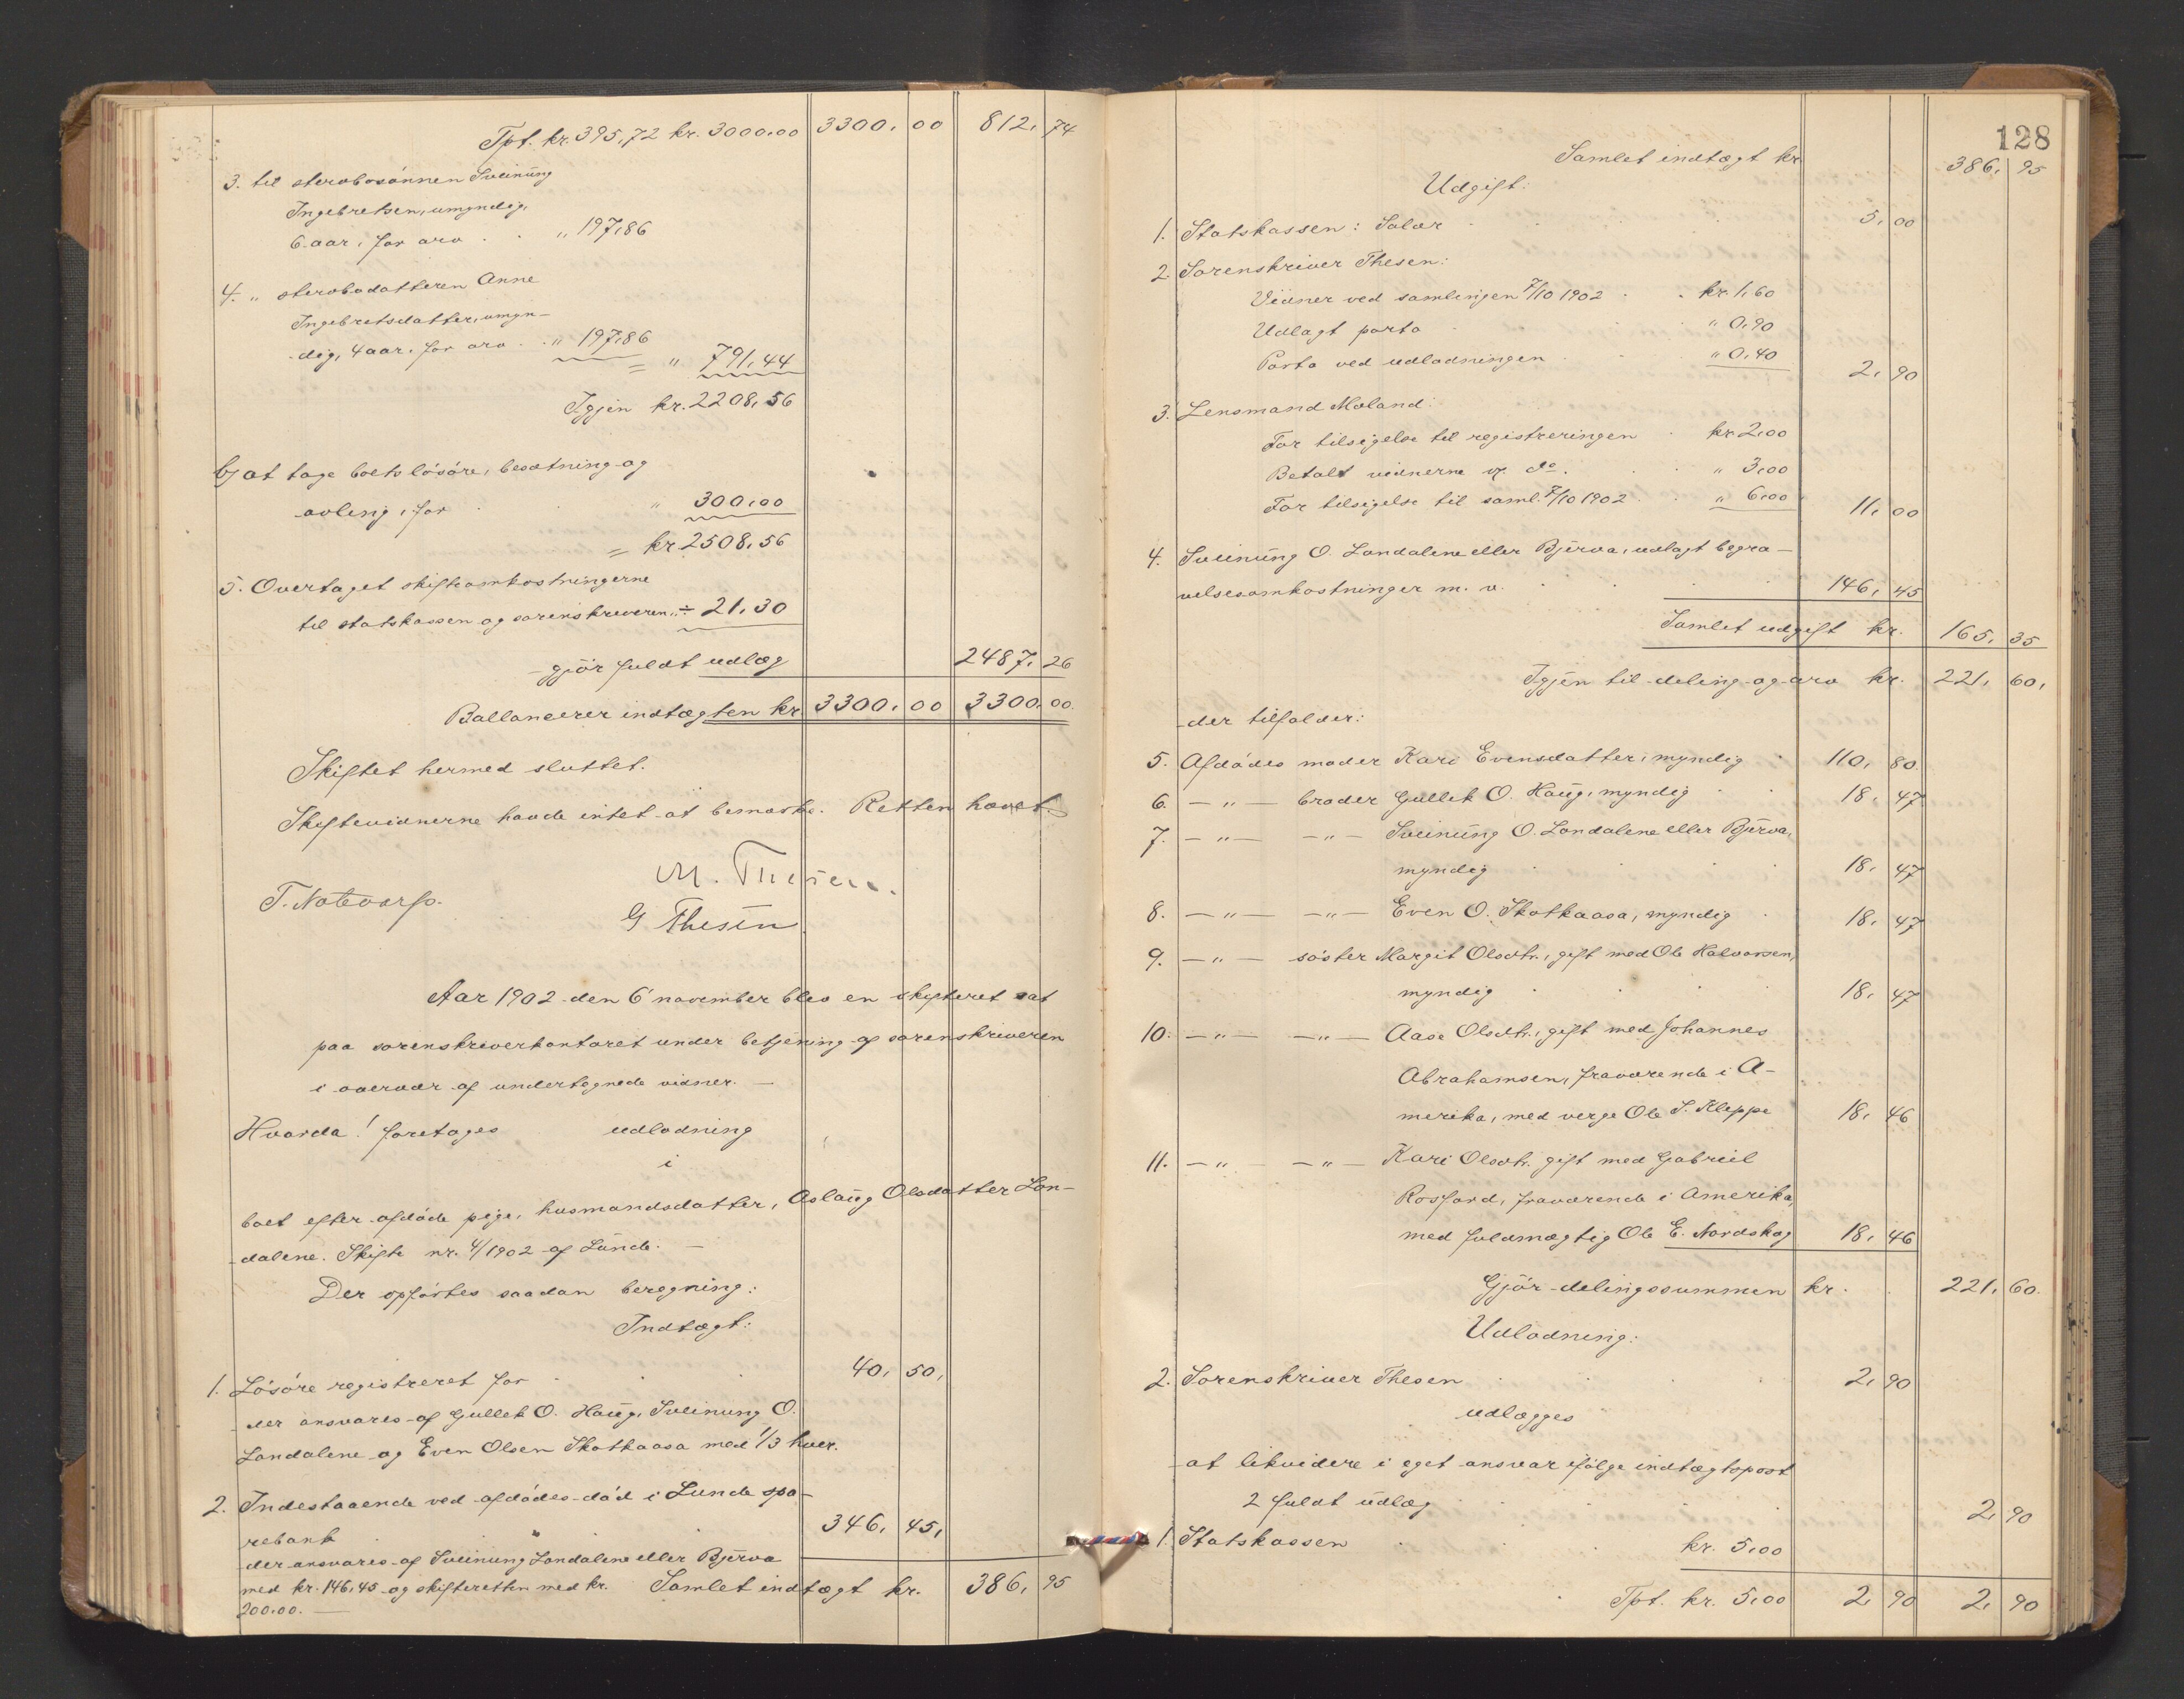 Tpt. kr. 395,72 kr. 3000.00 3300. 00 812. 74
3. til sterbosönnen Sveinung
Ingebretsen, umyndig,
6 aar, for arv . . „ 197.86
4. „ sterbodatteren Anne
Ingebretsdatter, umyn-
dig, 4 aar, for arv . . „ 197.86
= „ 791.44
Igjen kr. 2208. 56
b) at tage boets lösöre, besætning og
avling, for . „ 300.00
= kr. 2508. 56
5. Overtaget skifteomkostningerne
til statskassen og sorenskriveren „ ÷ 21.30
gjör fuldt udlæg 2487. 26
Ballancerer indtægten kr. 3300. 00 3300. 00.
Skiftet hermed sluttet.
Skiftevidnerne havde intet at bemærke. Retten hævet.
M. Thesen.
T. Notevarp.
G Thesen
Aar 1902 den 6 november blev en skifteret sat
paa sorenskriverkontoret under betjening af sorenskriveren
i overvær af undertegnede vidner. —
Hvorda! foretages udlodning
i
boet efter afdöde pige, husmandsdatter, Aslaug Olsdatter Lon-
dalene. Skifte nr. 4/1902 af Lunde. —
Der opförtes saadan beregning:
Indtægt:
1. Lösöre registreret for . . . 40. 50.
der ansvares af Gullek O. Haug, Sveinung O.
Londalene og Even Olsen Skotkaasa med 1/3 hver.
2. Indestaaende ved afdödes död i Lunde spa-
rebank . „ 346. 45.
der ansvares af Sveinung Londalene eller Bjerva
med kr. 146.45 og skifteretten med kr. Samlet indtægt kr. 386. 95
200.00. —
128
Samlet indtægt kr. 386. 95
Udgift:
1. Statskassen: Salær . . . 5. 00
2. Sorenskriver Thesen:
Vidner ved samlingen 7/10 1902 . . kr. 1.60
Udlagt porto . „ 0.90
Porto ved udlodningen . . „ 0.40 2. 90
3. Lensmand Moland:
For tilsigelse til registreringen . kr. 2.00
Betalt vidnerne v. do. . . „ 3.00
For tilsigelse til saml. 7/10 1902 . . „ 6.00 11. 00
4. Sveinung O. Londalene eller Bjerva, udlagt begra-
velsesomkostninger m. v. . . . 146. 45
Samlet udgift kr. 165. 35
Igjen til deling og arv kr. 221. 60.
der tilfalder:
5. Afdödes moder Kari Evensdatter, myndig . 110. 80.
6. — „ — broder Gullek O. Haug, myndig . . 18. 47
7. — „ — — „ — Sveinung O. Londalene eller Bjerva,
myndig . . . 18. 47
8. — „ — — „ — Even O. Skotkaasa, myndig . 18. 47
9. — „ — söster Margit Olsdtr., gift med Ole Halvorsen,
myndig . . . 18. 47
10. — „ — — „ — Aase Olsdtr., gift med Johannes
Abrahamsen, fraværende i A-
merika, med verge Ole S. Kleppe 18. 46
11. — „ — — „ — Kari Olsdtr. gift med Gabriel
Rosfjord, fraværende i Amerika,
med fuldmægtig Ole E. Nordskog 18. 46
Gjör delingssummen kr. . 221. 60.
Udlodning:
2. Sorenskriver Thesen . . . 2. 90
udlægges
at likvidere i eget ansvar ifölge indtægtspost
2 fuldt udlæg . . . 2. 90
1. Statskassen . . kr. 5.00
Tpt. kr. 5.00 2. 90 2. 90